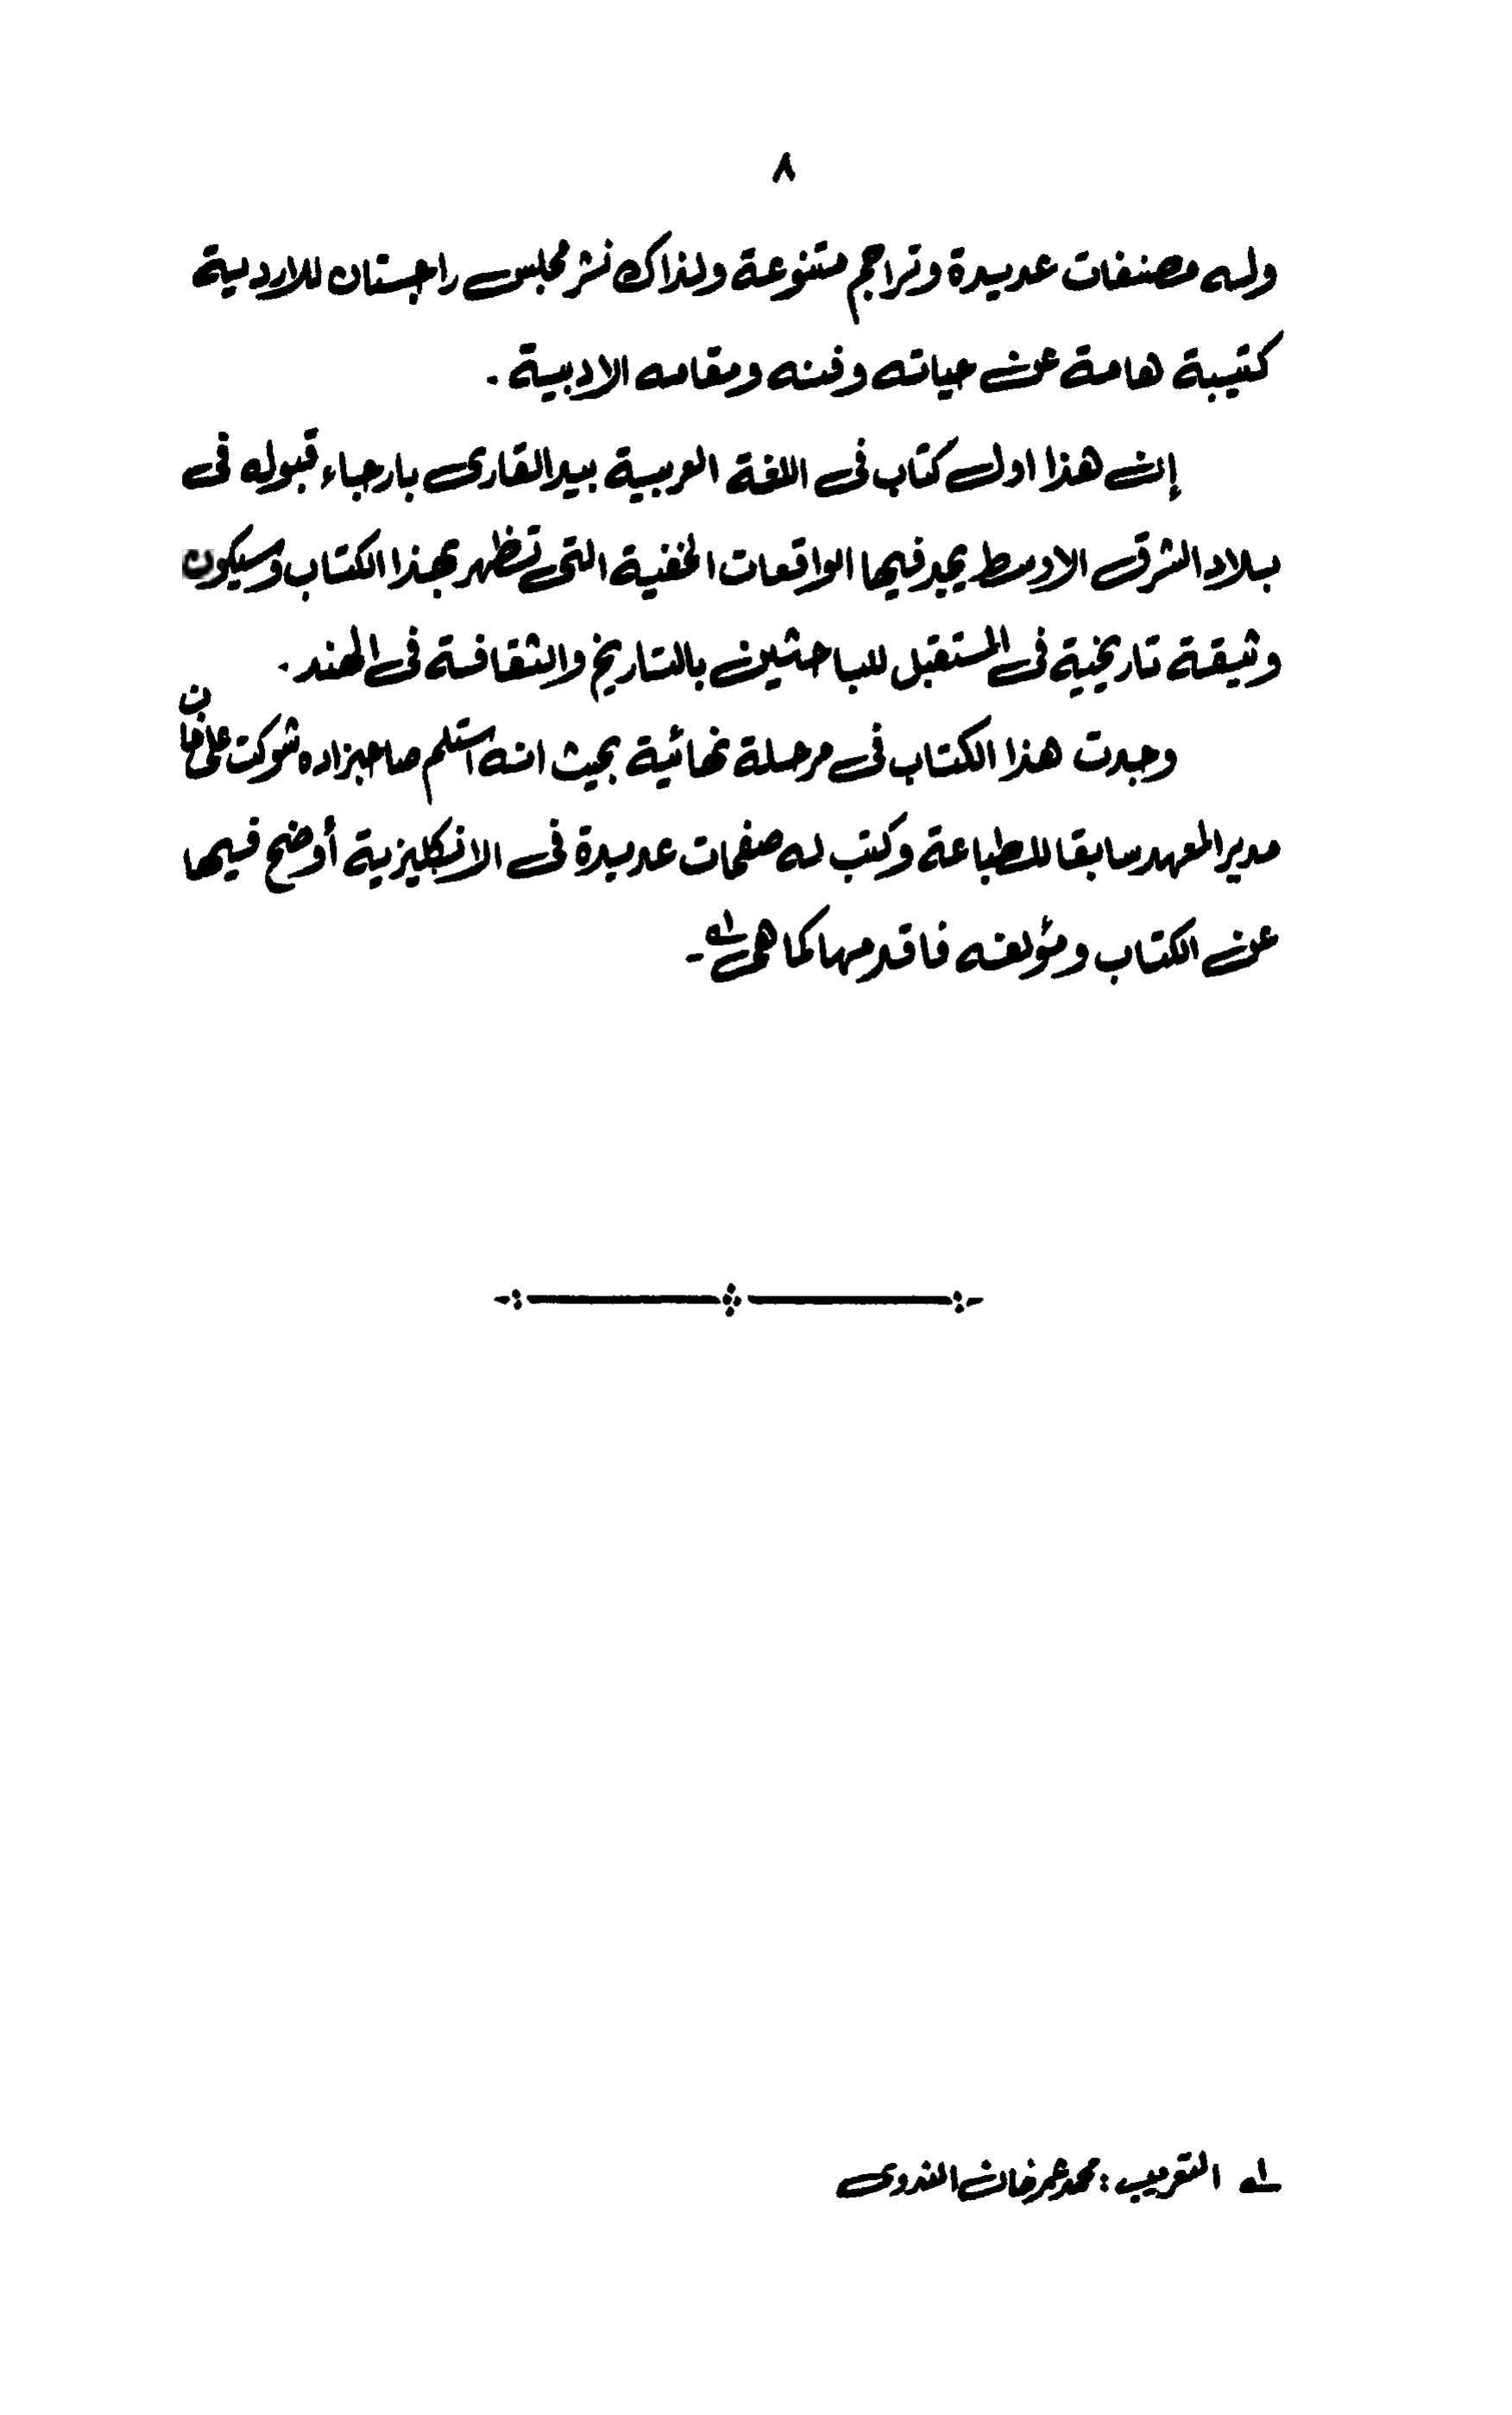 ٨
وله مصنفات عديدة وتراجم متنوعة ولذاك نشر مجلس راجستان للاردية
كتيبة هامة عن حياته وفنه ومقامه الادبية .
إن هذا اول كتاب فى اللغة العربية بيد القارى بارجاء قبوله فى
بلاد الشرق الاوسط يجد فيها الواقعات الخفية التى تظهر بهذا الكتاب وسيكون
وثيقة تاريخية فى المستقبل للباحثين بالتاريخ والثقافة فى الهند .
وجدت هذا الكتاب فى مرحلة نهائية بحيث انه استلم صاحبزاده شوكت على خان
مدير المعهد سابقا للطباعة وكتب له صفحات عديدة فى الانكليزية أوضح فيها
عن الكتاب ومؤلفه فاقدمها كما هى لـه ـ
لـه التعريب : محمد عمر خان الندوى